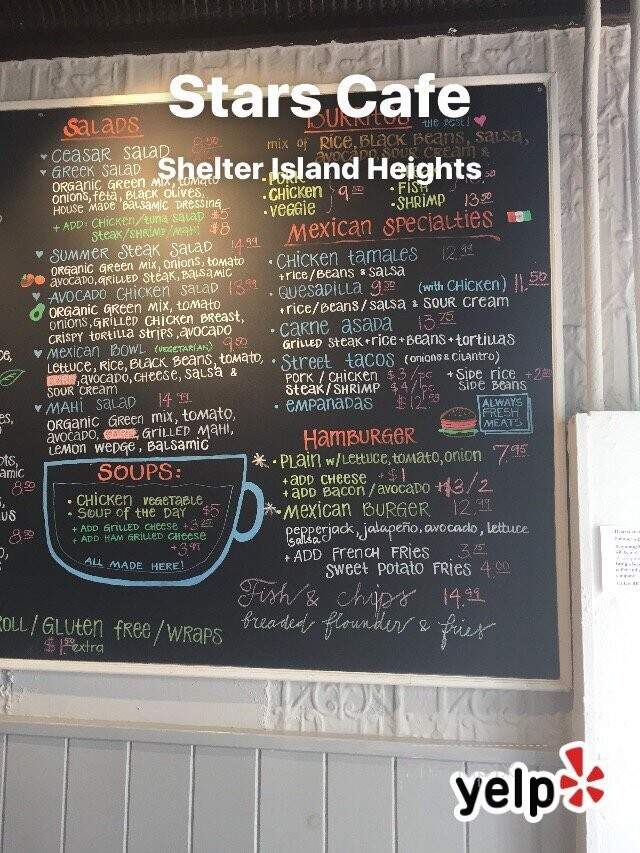 Stars Cafe
Shelter Island Heights
SALADS
CEASAR SALAD
GREEK SALAD
ORGANIC GREEN MIX, TOMATO
ONIONS, FETA, BLACK OLIVES,
HOUSE MADE BALSAMIC DRESSING
+ ADD: CHICKEN/TUNA SALAD $5
STEAK/SHRIMP/MAHI $8
SUMMER STEAK SALAD 14.99
ORGANIC GREEN MIX, ONIONS, TOMATO
AVOCADO, GRILLED STEAK, BALSAMIC
AVOCADO CHICKEN SALAD 13.99
ORGANIC GREEN MIX, TOMATO
ONIONS, GRILLED CHICKEN BREAST,
CRISPY TORTILLA STRIPS, AVOCADO
MEXICAN BOWL (VEGETARIAN) 9.50
LETTUCE, RICE, BLACK BEANS, TOMATO,
AVOCADO, CHEESE, SALSA &
SOUR CREAM
MAHI SALAD 14.99
ORGANIC GREEN MIX, TOMATO,
AVOCADO, GRILLED MAHI,
LEMON WEDGE, BALSAMIC
SOUPS:
• CHICKEN VEGETABLE
• SOUP OF THE DAY $5
+ ADD GRILLED CHEESE
+ ADD HAM GRILLED CHEESE
ALL MADE HERE!
ROLL / GLUTEN FREE / WRAPS
$1.50 extra
BURRITOS the best!
mix of RICE, BLACK BEANS, SALSA,
AVOCADO, SOUR CREAM &
• PORK
• CHICKEN 9.50
• VEGGIE
• FISH
• SHRIMP 13.50
MEXICAN SPECIALTIES
• CHICKEN TAMALES 12.99
+RICE/BEANS & SALSA
• QUESADILLA 9.50 (with CHICKEN) 11.50
+RICE/BEANS/SALSA & SOUR CREAM
• CARNE ASADA 13.75
GRILLED STEAK+RICE+BEANS+TORTILLAS
• STREET TACOS (ONIONS & CILANTRO)
PORK / CHICKEN $3/pc + SIDE RICE
STEAK/SHRIMP $4/pc SIDE BEANS
• EMPANADAS
ALWAYS
FRESH
MEATS
HAMBURGER
• PLAIN W/LETTUCE, TOMATO, ONION 7.95
+ADD CHEESE +$1
+ADD BACON/AVOCADO +$3/2
• MEXICAN BURGER 12.99
pepperjack, jalapeño, avocado, lettuce
salsa
+ ADD FRENCH FRIES 3.25
SWEET POTATO FRIES 4.00
Fish & chips 14.99
breaded flounder & fries
yelp